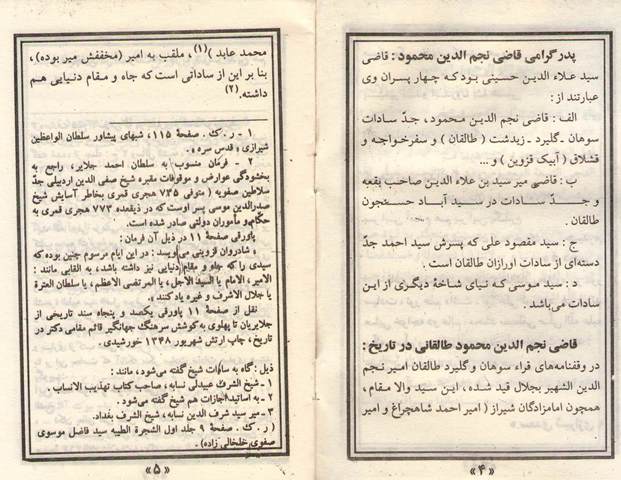 پدر گرامی قاضی نجم الدین محمود : قاضی
سید علاء الدین حسینی بود که چهار پسران وی
عبارتند از :
الف : قاضی نجم الدین محمود، جدّ سادات
سوهان ـ گلیرد ـ زیدشت ( طالقان ) و سفرخواجه و
قشلاق ( آبیک قزوین ) و...
ب : قاضی میر سید بن علاء الدین صاحب بقعه
و جدّ سادات در سید آباد حسنجون
طالقان .
ج : سید مقصود علی که پسرش سید احمد جدّ
دسته‌ای از سادات اورازان طالقان است .
د : سید موسی که نیای شاخهٔ دیگری از این
سادات می‌باشد .
قاضی نجم الدین محمود طالقانی در تاریخ :
در وقفنامه‌های قراء سوهان و گلیرد طالقان امیر نجم
الدین الشهیر بجلال قید شده ، این سید والا مقام ،
همچون امامزادگان شیراز ( امیر احمد شاهچراغ و امیر
«۴»
محمد عابد )(۱)، ملقب به امیر (مخففش میر بوده) ،
بنا بر این از ساداتی است که جاه و مقام دنیایی هم
داشته.(۲)
۱ - ر . ک . صفحهٔ ۱۱۵، شبهای پیشاور سلطان الواعظین
شیرازی « قدس سره » .
۲ - فرمان منسوب به سلطان احمد جلایر، راجع به
بخشودگی عوارض و موقوفات مقبره شیخ صفی الدین اردبیلی جدّ
سلاطین صفویه ( متوفی ۷۳۵ هجری قمری بخاطر آسایش شیخ
صدرالدین موسی پسر اوست که در ذیقعده ۷۷۳ هجری قمری به
حکّام و مأموران دولتی صادر شده است .
پاورقی صفحهٔ ۱۱ در ذیل آن فرمان :
« شادروان قزوینی می‌نویسد : در این ایام مرسوم چنین بوده که
سیدی را که جاه و مقام دنیایی نیز داشته باشد ، به القابی مانند :
الامیر، الامام یا السید الاجل ، یا المرتضی الاعظم، یا سلطان العترة
یا جلال الاشرف و غیره یاد کنند » .
نقل از صفحهٔ ۱۱ پاورقی یکصد و پنجاه سند تاریخی از
جلایریان تا پهلوی به کوشش سرهنگ جهانگیر قائم مقامی دکتر در
تاریخ ، چاپ ارتش شهریور ۱۳۴۸ خورشیدی .
ذیل : گاه به سادات شیخ گفته می‌شود ، مانند :
۱ - شیخ الشرف عبیدلی نسابه ، صاحب کتاب تهذیب الانساب .
۲ - به اساتید اجازات هم شیخ گفته می‌شود .
۳ - میر سید شرف الدین نسابه ، شیخ الشرف بغداد.
( ر . ک . صفحهٔ ۹ جلد اول الشجرة الطیبه سید فاضل موسوی
صفوی خلخالی زاده) .
«۵»